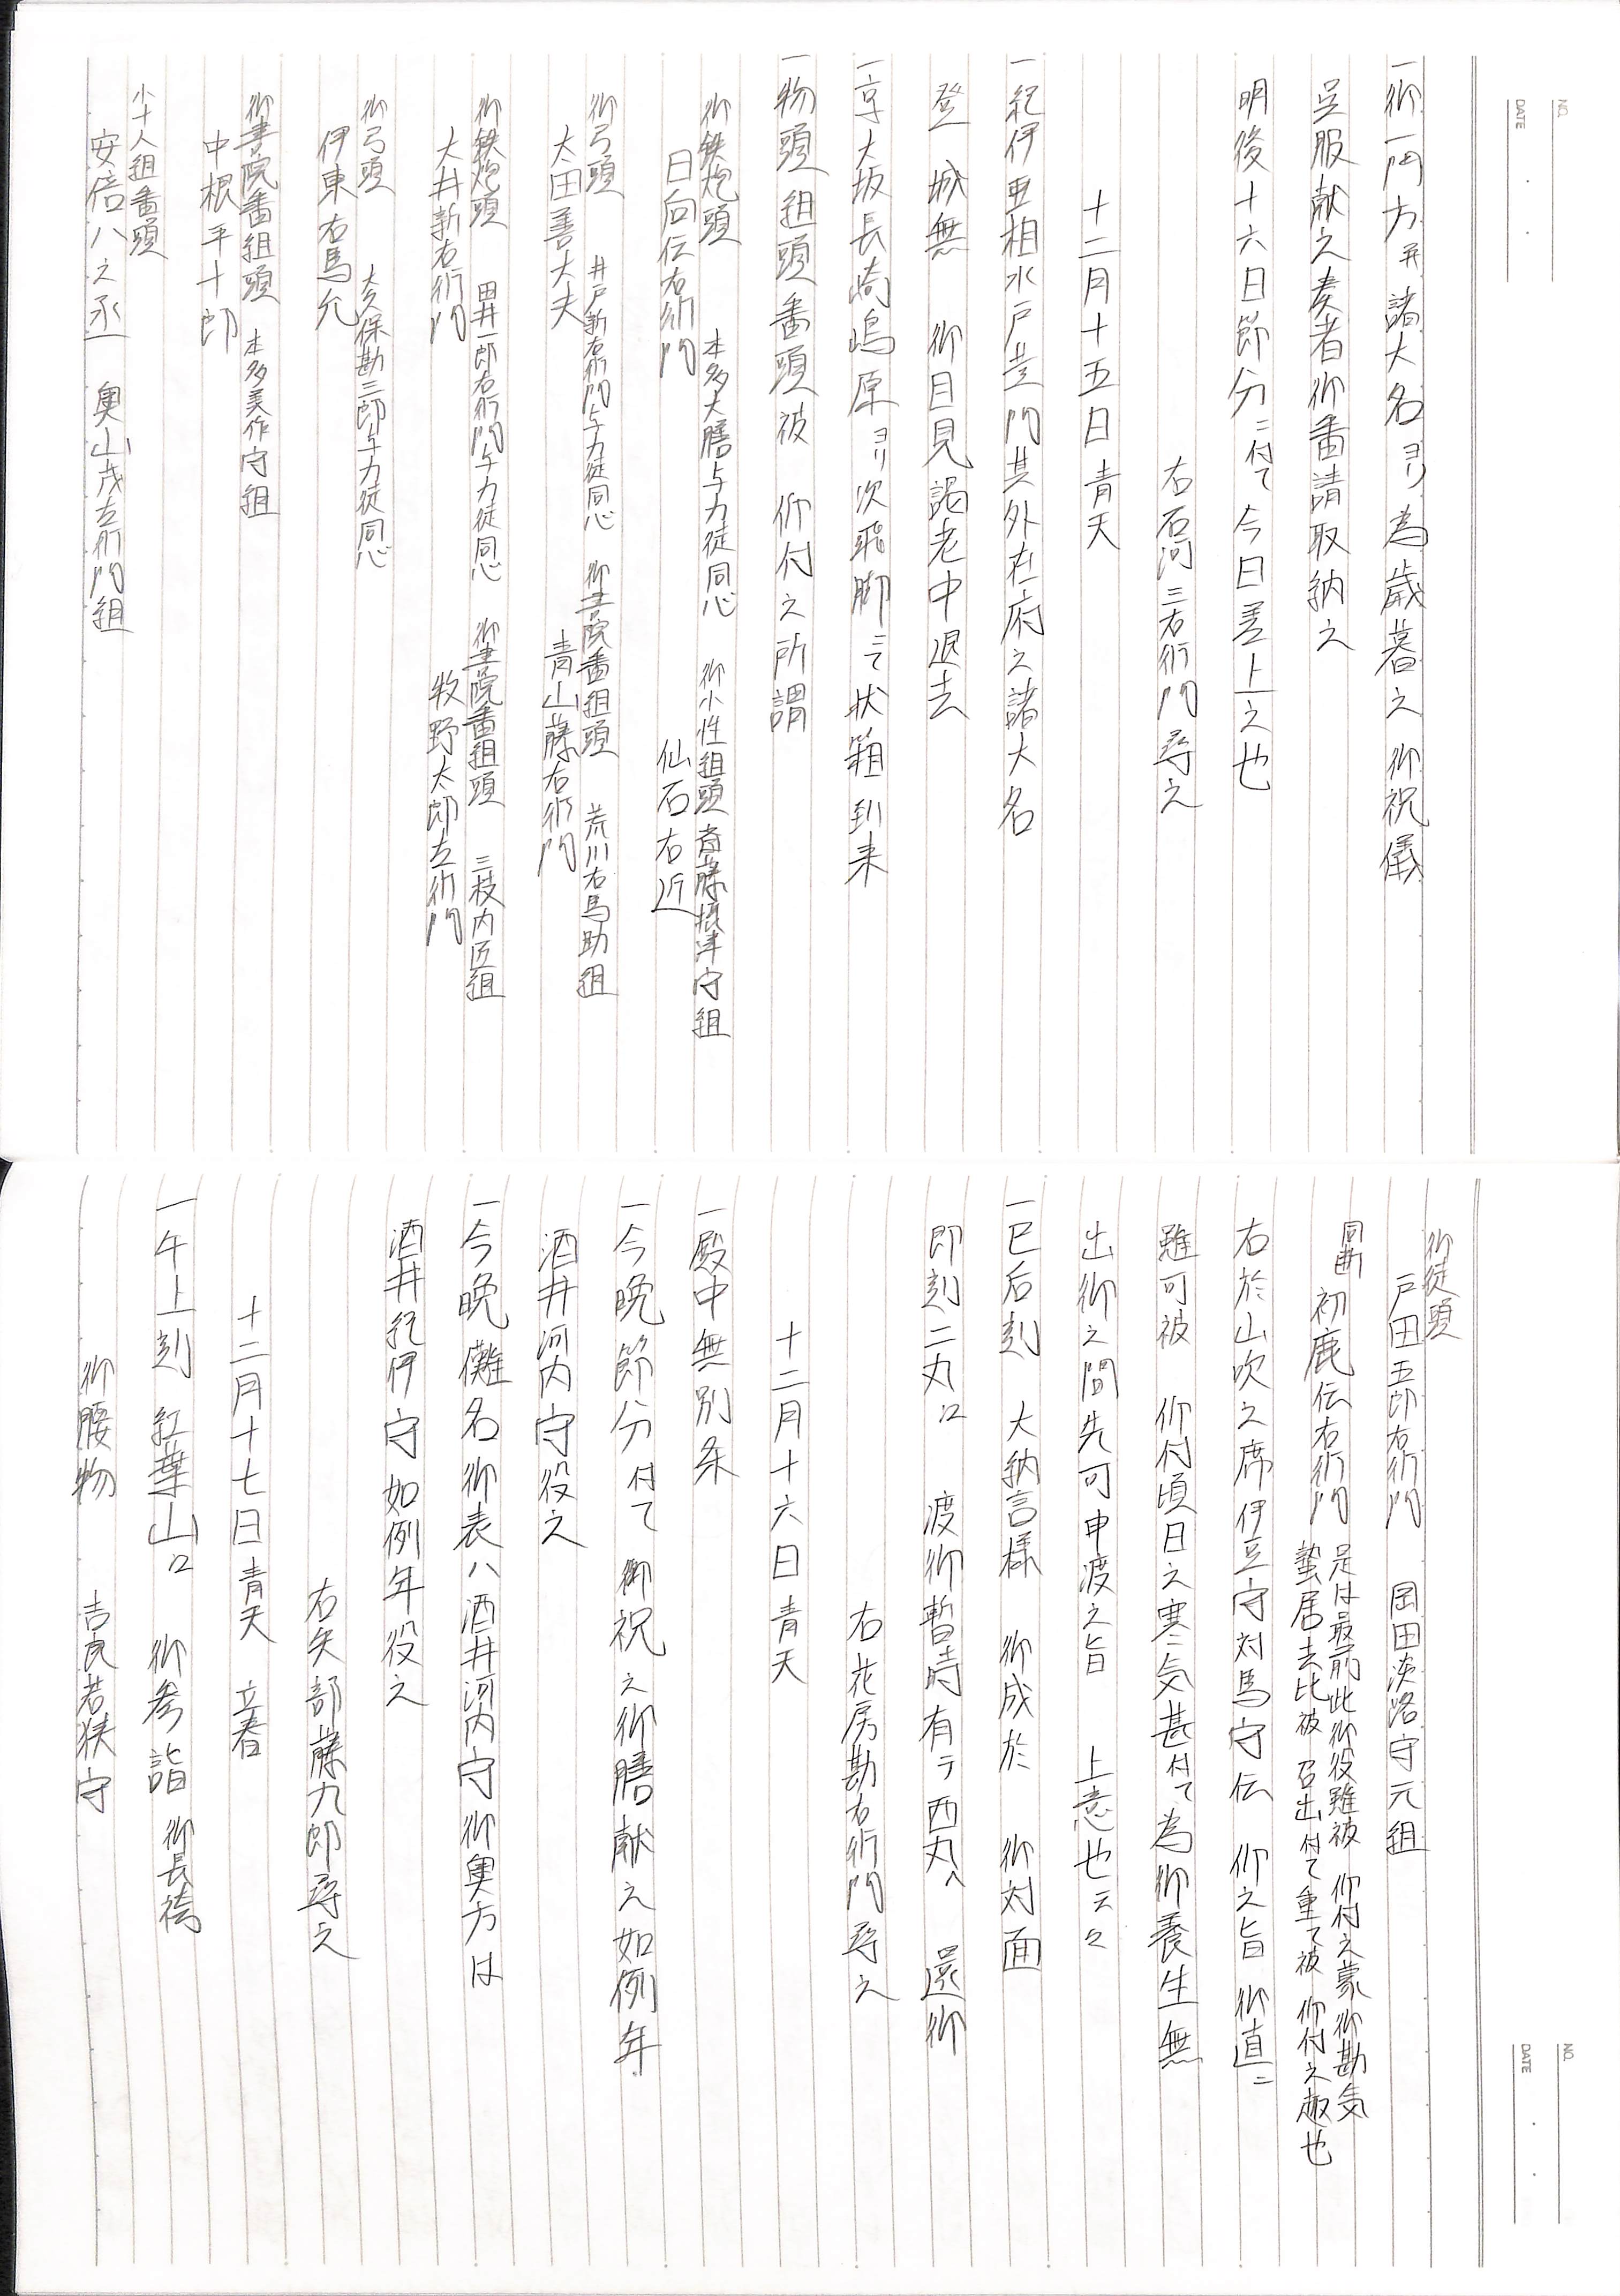 NO.
DATE
一御一門方并諸大名ヨリ為歳暮之御祝儀
呈服献之奏者御番請取納之
明後十六日節分ニ付て今日差上之也
右石河三右衛門尋之
十二月十五日青天
一紀伊亜相水戸黄門其外在府之諸大名
登 城無 御目見謁老中退去
一京大坂長崎嶋原ヨリ次飛脚ニて状箱到来
一物頭組頭番頭被 仰付之所謂
御鉄炮頭 本多大膳与力徒同心 御小性組頭斎藤摂津守組
日向伝右衛門 仙石右近
御弓頭 井戸新右衛門与力徒同心 御書院番組頭 荒川右馬助組
太田善大夫 青山藤右衛門
御鉄炮頭 田井一郎右衛門与力徒同心 御書院番組頭 三枝内匠組
大井新右衛門 牧野太郎左衛門
御弓頭 大久保勘三郎与力徒同心
伊東右馬允
御書院番組頭 本多美作守組
中根平十郎
小十人組番頭
安倍八之丞 奥山茂左衛門組
NO.
DATE
御徒頭
戸田五郎右衛門 岡田淡路守元組
同断 初鹿伝右衛門 是は最前此御役雖被 仰付之蒙御勘気
蟄居去比被 召出付て重て被 仰付之趣也
右於山吹之席伊豆守対馬守伝 仰之旨 御直ニ
雖可被 仰付頃日之寒気甚付て為御養生無
出御之間先可申渡之旨 上意也云々
一巳后刻 大納言様 御成於 御対面
即刻二丸江 渡御暫時有テ西丸へ 還御
右花房勘右衛門尋之
十二月十六日青天
一殿中無別条
一今晩節分付て 御祝之御膳献之如例年
酒井河内守役之
一今晩儺名御表ハ酒井河内守御奥方は
酒井紀伊守如例年役之
右矢部藤九郎尋之
十二月十七日青天 立春
一午上刻 紅葉山江 御参詣 御長袴
御腰物 吉良若狭守